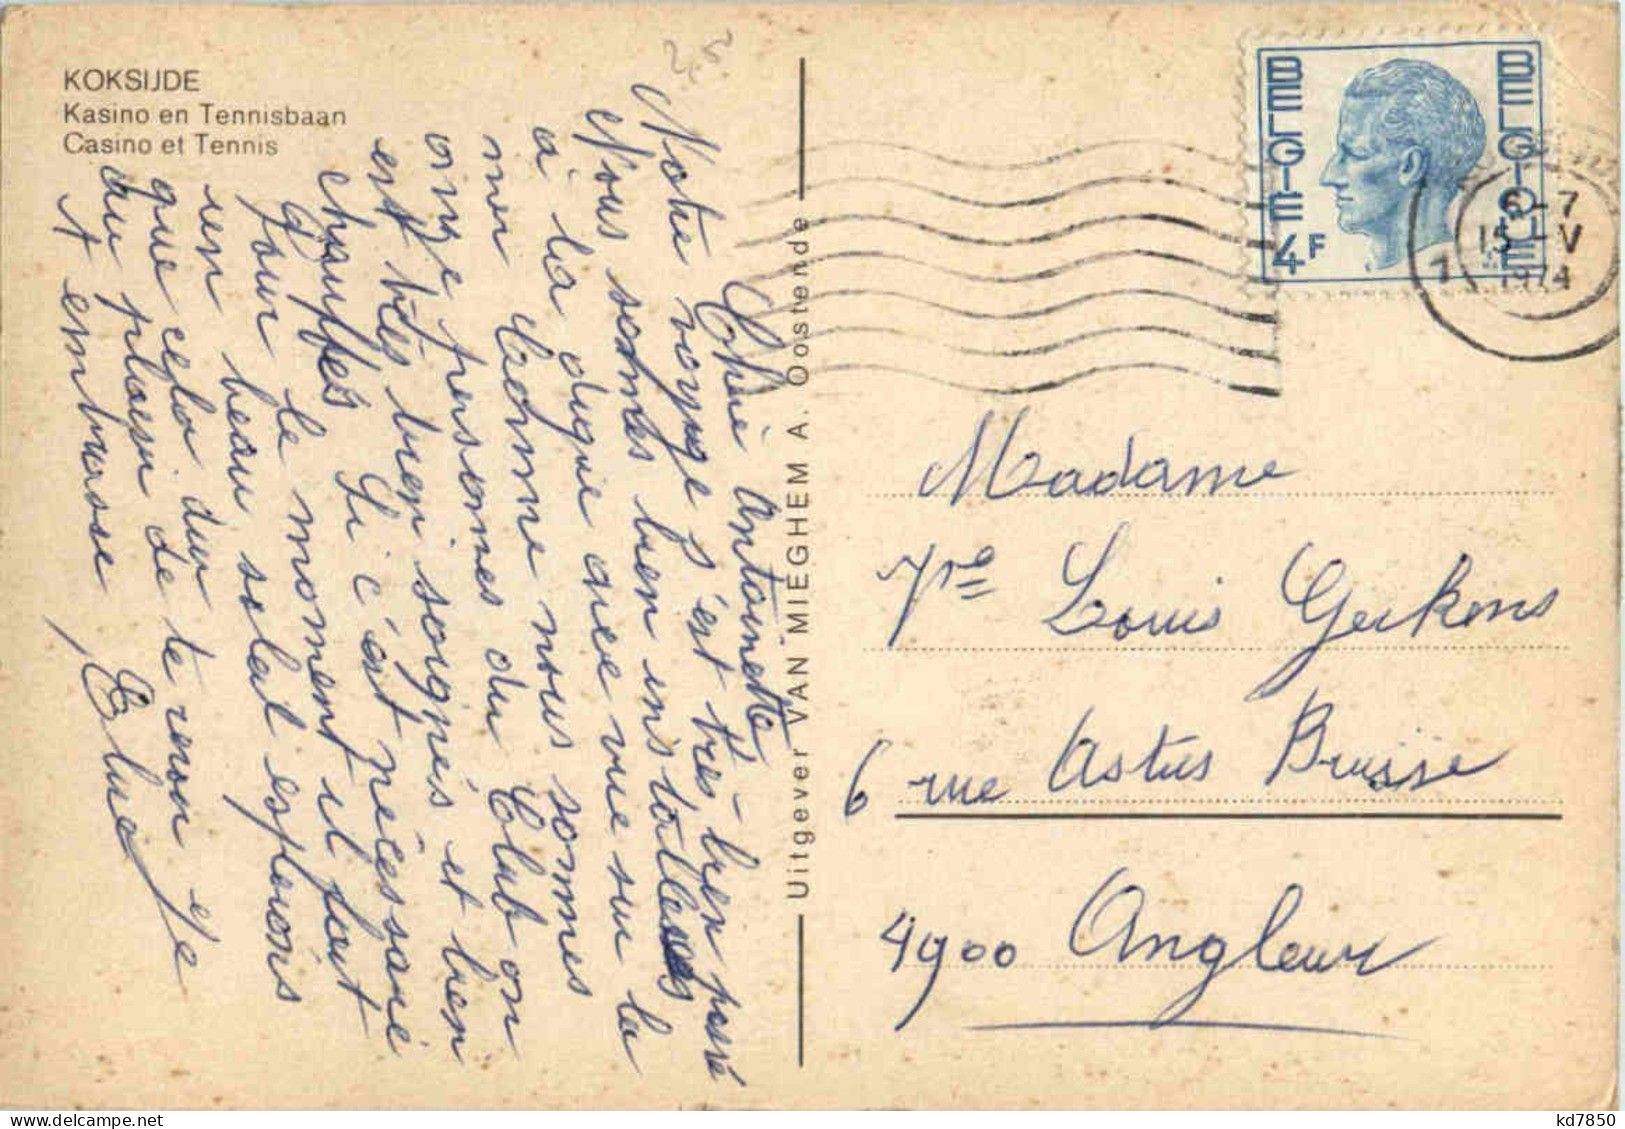 KOKSIJDE
Kasino en Tennisbaan
Casino et Tennis
Chèie Antoinette
Notre voyage s'est très-bien passé
Nous sommes bien installées
à la digue avec vue sur la
mer Comme nous sommes
onze personnes du Club on
est très bien soignés et bien
chauffés Si c'est nécessaire
Pour le moment il fait
un beau soleil espérons
que cela dur
au plaisir de te revoir Je
t'embrasse
Uitgever VAN MIEGHEM A. Oostende
BELGIE
BELGIQUE
4F
6-7
15-V
1974
Madame
Louis Geikens
6 rue Astus Bruisse
4900 Angleur
kd7850